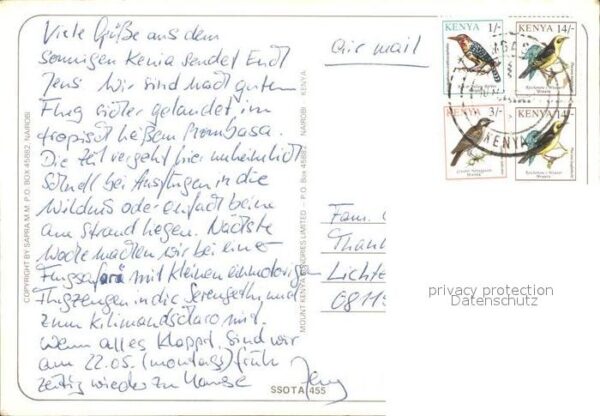 Viele Grüße aus dem
sonnigen Kenia sendet Euch
Jens. Wir sind nach gutem
Flug sicher gelandet im
tropisch heißem Mombasa.
Die Zeit vergeht hier unheimlich
schnell bei Ausflügen in die
Wildnis oder einfach beim
am Strand liegen. Nächste
Woche machten wir bei einer
Flugsafari mit kleinen einmotorigen
Flugzeugen in die Serengethi und
zum Kilimandscharo mit.
Wenn alles klappt, sind wir
am 22.05. (montags) früh
zeitig wieder zu Hause
Jens
COPYRIGHT BY SAPRA M.M. P.O. BOX 45882, NAIROBI
MOUNT KENYA SUNDRIES LIMITED - P.O. Box 45882 NAIROBI KENYA
SSOTA 455
air mail
KENYA 1/-
KENYA 14/-
KENYA 3/-
KENYA 14/-
KENYA
Fam.
Thann
Lichte
privacy protection
Datenschutz